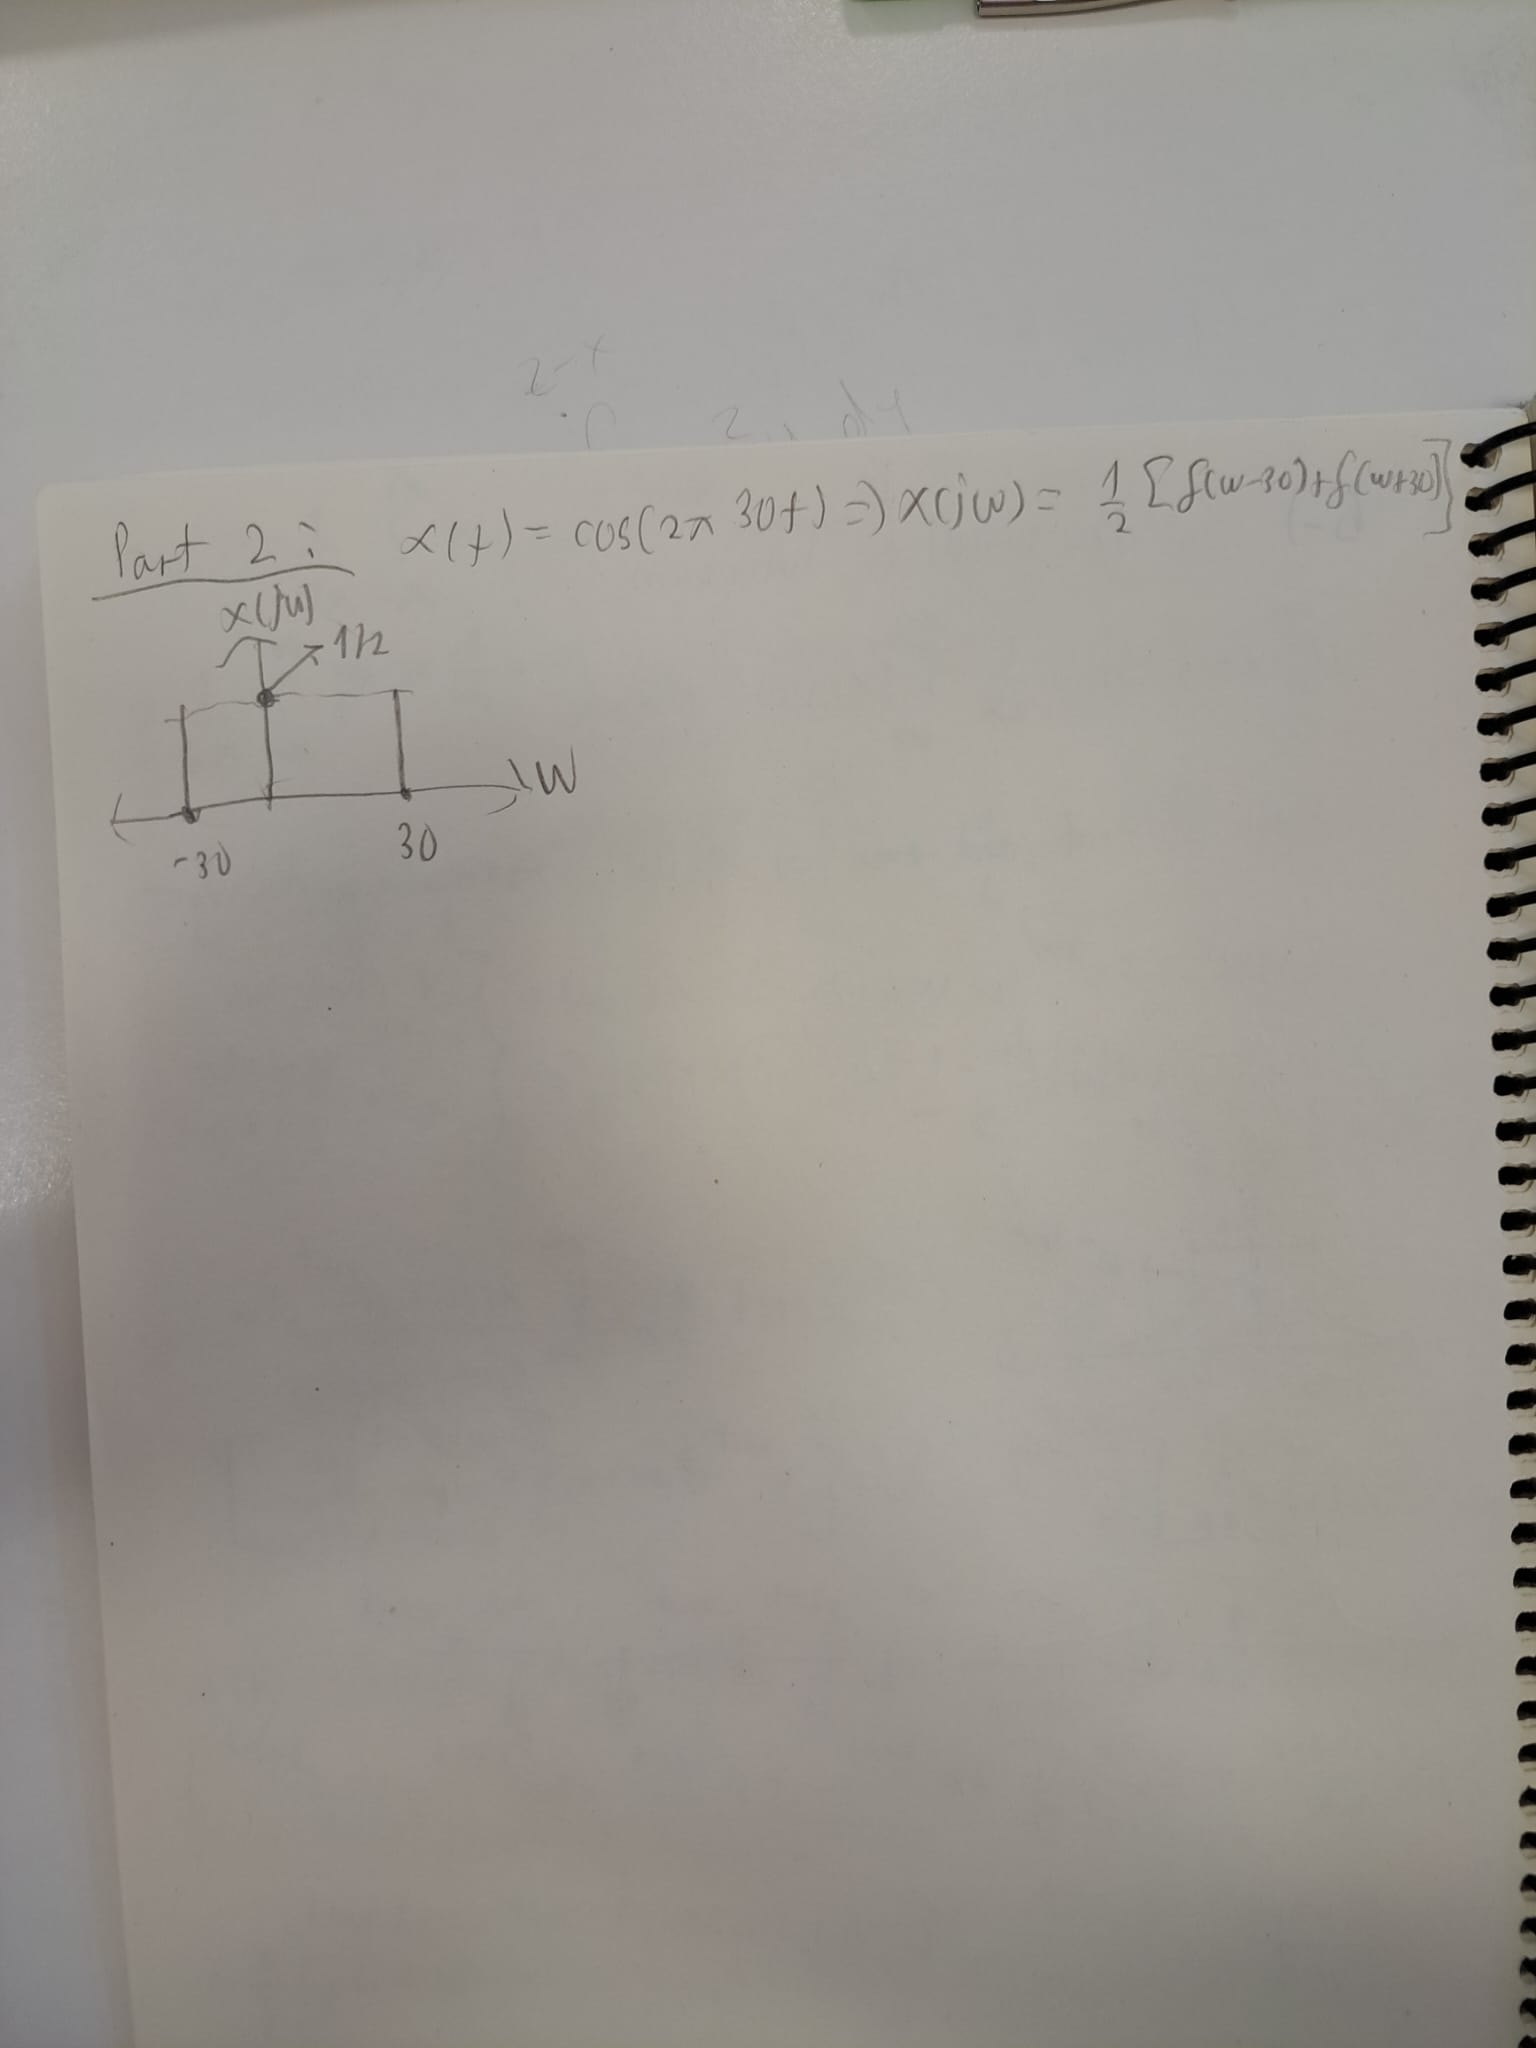 Part 2 : x(t) = cos(2π 30t) => X(jw) = 1/2 [f(w-30)+f(w+30)]
x(jw)
1/2
W
-30 30